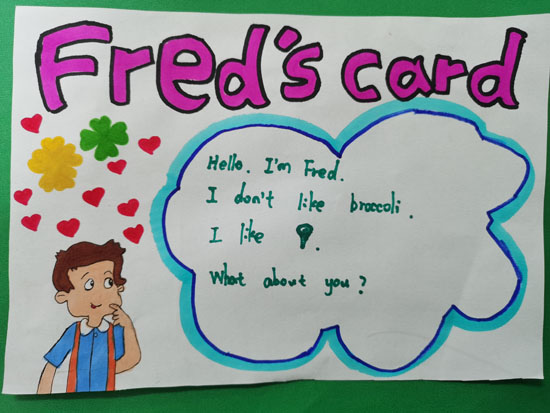 Fred's card
Hello. I'm Fred.
I don't like broccoli.
I like .
What about you?